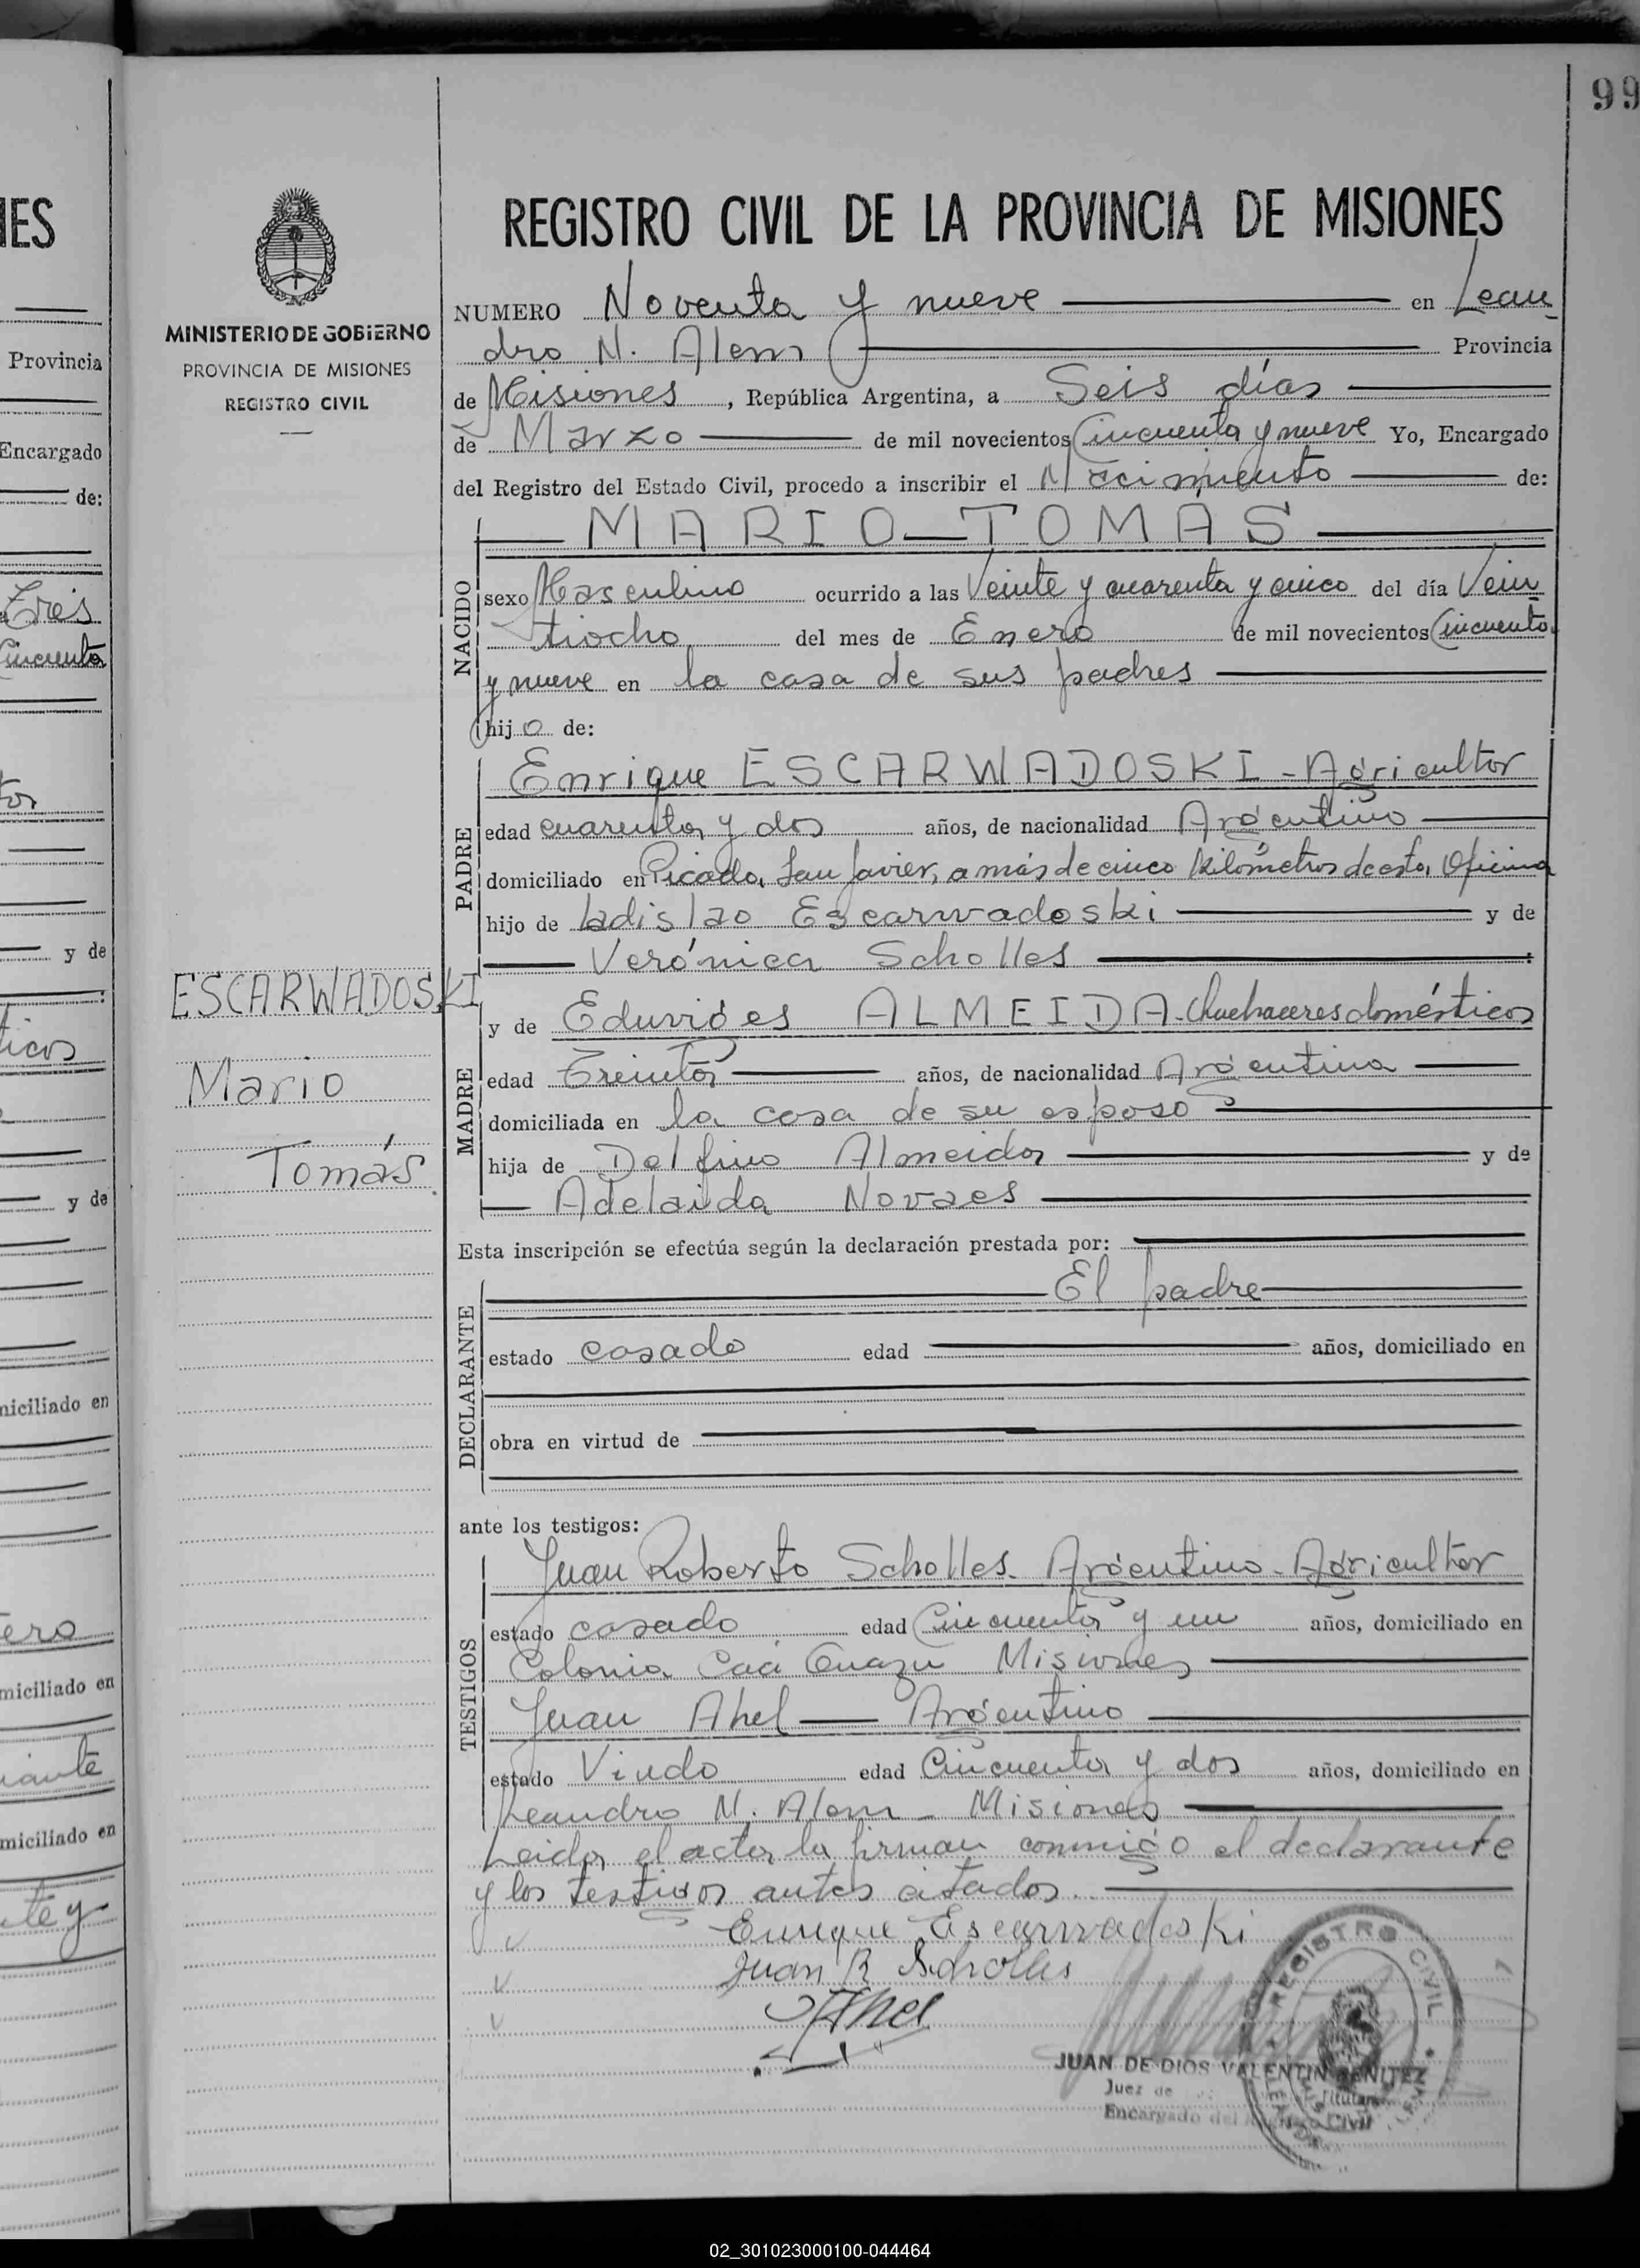 99
IES
Provincia
Encargado
de:
Tres
Cincuenta
y de
y de
miciliado en
miciliado en
miciliado en
MINISTERIO DE GOBIERNO
PROVINCIA DE MISIONES
REGISTRO CIVIL
ESCARWADOSKI
Mario
Tomás.
REGISTRO CIVIL DE LA PROVINCIA DE MISIONES
NUMERO Noventa y nueve en Lean_
dro N. Alem Provincia
de Misiones, República Argentina, a Seis días
de Marzo de mil novecientos Cincuenta y nueve Yo, Encargado
del Registro del Estado Civil, procedo a inscribir el Nacimiento de:
MARIO TOMAS
NACIDO
sexo Masculino ocurrido a las Veinte y cuarenta y cinco del día Vein
tiocho del mes de Enero de mil novecientos Cincuenta
y nueve en la casa de sus padres
hijo de:
PADRE
Enrique ESCARWADOSKI - Agricultor
edad cuarenta y dos años, de nacionalidad Argentino
domiciliado en Picada San Javier, a más de cinco kilómetros de esta Oficina
hijo de Ladislao Escarwadoski y de
Verónica Scholles
MADRE
y de Eduviges ALMEIDA - Quehaceres domésticos
edad Treinta años, de nacionalidad Argentina
domiciliada en la casa de su esposo
hija de Delfino Almeida y de
Adelaida Novaes
Esta inscripción se efectúa según la declaración prestada por:
DECLARANTE
El padre
estado casado edad años, domiciliado en
obra en virtud de
ante los testigos:
TESTIGOS
Juan Roberto Scholles - Argentino - Agricultor
estado casado edad Cincuenta y un años, domiciliado en
Colonia Caá Guazu Misiones
Juan Ahel Argentino
estado Viudo edad Cincuenta y dos años, domiciliado en
Leandro N. Alem - Misiones
Leida el acta la firman conmigo el declarante
y los testigos antes citados.
Enrique Escarwadoski
Juan R Scholles
JAhel
REGISTRO CIVIL
JUAN DE DIOS VALENTIN BENITEZ
Juez de
Titular
Encargado del Registro Civil
02_301023000100-044464